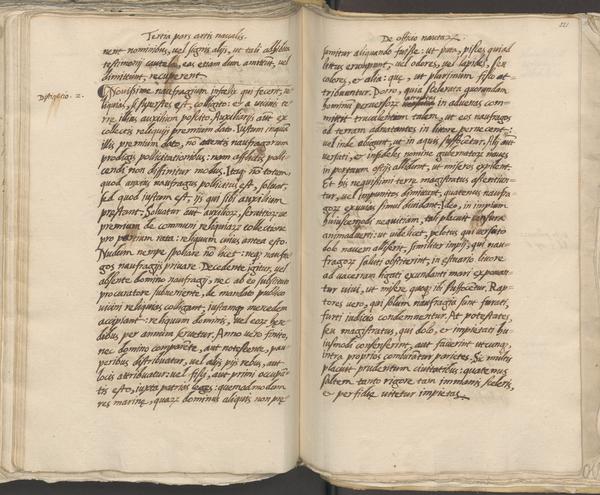 Tertia pars artis navalis.
nent nominibus, vel signis alijs, ut tali adhibito
testimonij cautela, eas etiam dum amittit, vel
dimittunt, recuperent.
Distinctio. 2.
Novissime naufragium infelix qui fecerit, re
liquias, si superstes est, colligito: et a vicinis te
rre illius auxilium poscito. Auxiliarijs aut ex
collectis reliquijs premium dato. Iustum inquam
illis premium dato, nō aurentis naufragorum
prodigis pollicitationibus: nam afflictis polli
cendi non diffinitur modus. Itaq; nō totum
quod anxius naufragus pollicitus est, solvat,
sed quod iustum est, ijs qui sibi auxilium
prestant. Solvatur aut auxiliorz, servitiorz ve
premium de communi reliquiarz collectione
pro rata: reliquum cuius antea esto.
Nudum nempe spoliare nō licet: neq; naufra
gos naufragijs privare. Decedente igitur, vel
absente domino naufragij, nec ab eo substituto
procuratore subveniente, de mandato publico
vicini reliquias colligant, iustamq; mercedem
accipiant: reliquum dominis, vel eorz here
dibus per annum servetur. Anno vero finito,
nec domino comparente, aut notescente, pau
peribus distribuatur, vel alijs pijs rebus, aut
locis attribuatur: vel fisci, aut primi occupan
tis esto, iuxta patrias leges: quemadmodum
res marine, quarz dominus aliquis non pre
De officio nautarz.
221
sumitur aliquando fuisse: ut puta, pisces quiad
littus erumpunt, vel odores, vel lapides, seu
colores, et alia: que, ut plurimum fisco at
tribuuntur. Porro, quia scelerata quorundam
hominū perversorz in advenas com
mittit truculentum talem, ut eos naufragos
ad terram adnatantes in litore perimant:
vel inde abigunt, ut in aquis suffocētur. Alij aut
versuti, et infideles nomine gubernatorz naves
in portuum ostijs allidunt, ut miseros expilent.
Et his nequissimi terre magistratus assentiun
tur, vel impunitos dimittunt, quatenus naufra
gorz exuvias simul dividant. Ideo, in impiam
huiuscemodi nequitiam, tali placuit censura
animadverti: ut videlicet, pilotus qui versuto
dob navem alliserit, similiter impij, qui nau
fragorz saluti obstiterint, in estuario litore
ad vacerram ligati exundanti mari exponan
tur vivi, ut misere quoq; ibi suffocētur. Rap
tores vero, qui solum naufragia sunt furati,
furti indicio condemnentur. At potestates,
seu magistratus, qui dolo, et impietati hu
iusmodi consenserint, aut faverint utcunq;
intra proprios comburātur parietes. Sic multis
placuit prudentum civitatibus: quatenus
saltem tanto rigore tam immanis sceleris,
et perfidię vitetur impietas.